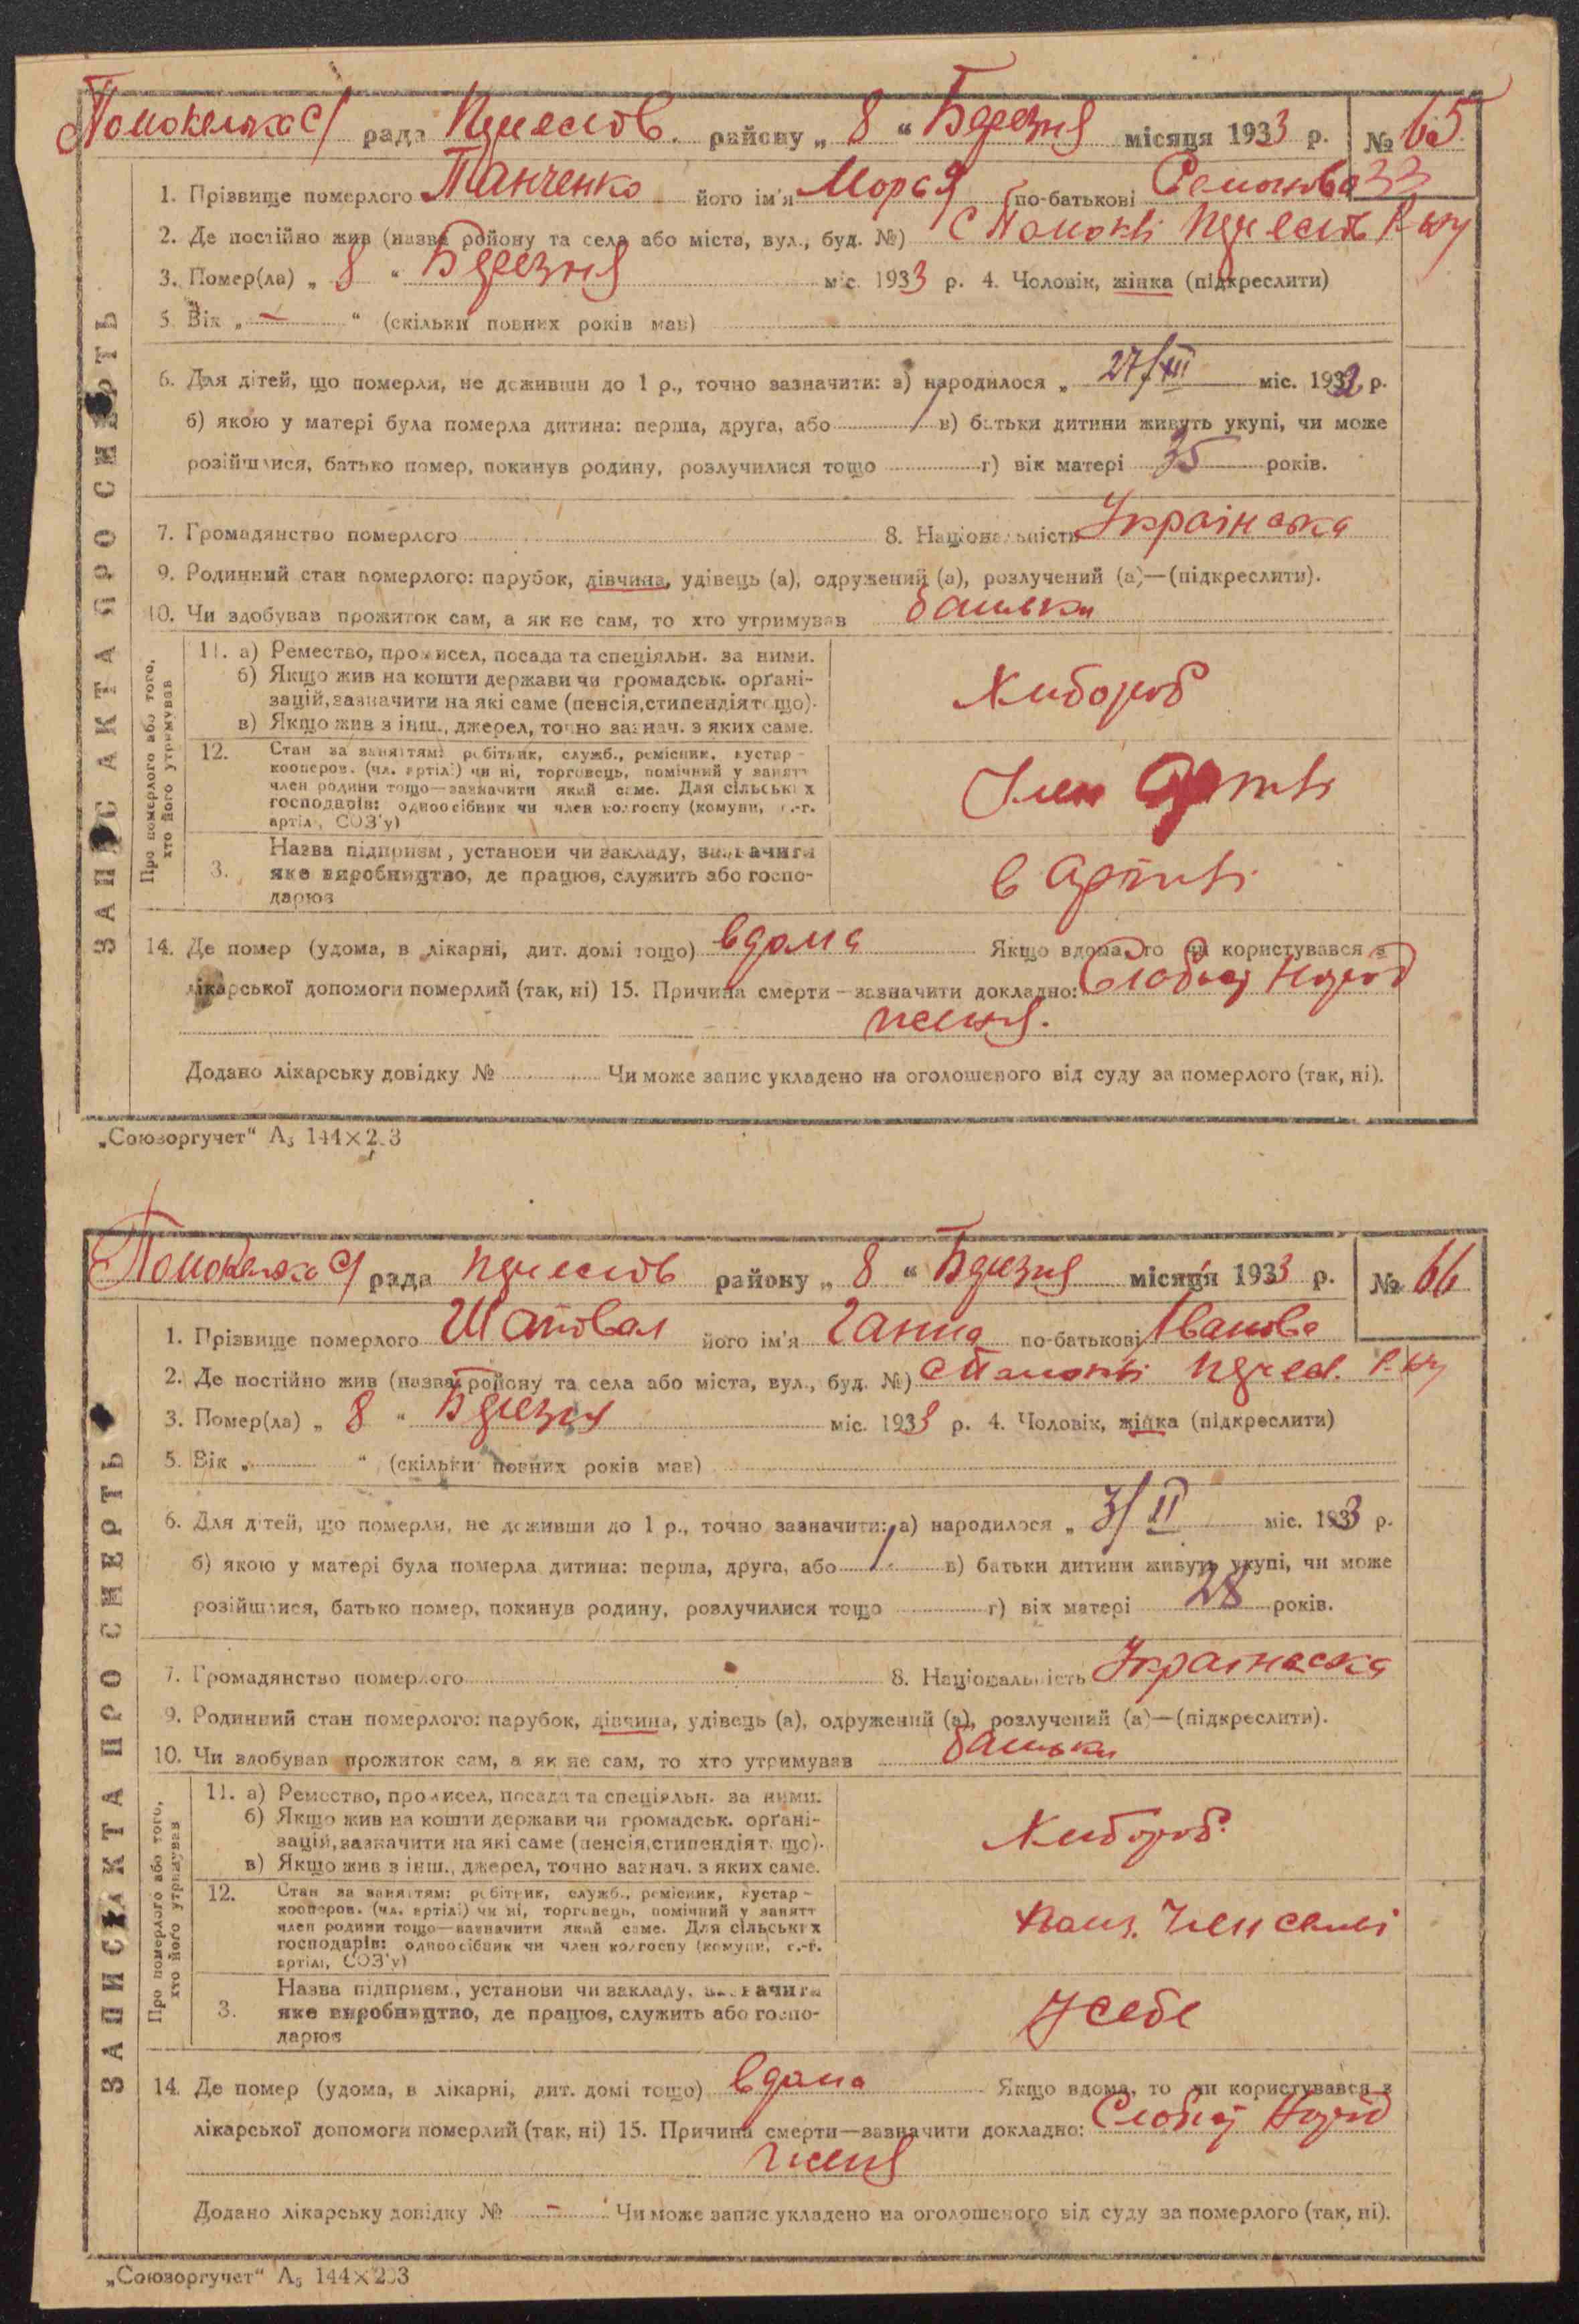 рада району „ 8 “ Березня місяця 1933 р. № 65
33
1. Прізвище померлого Панченко його ім'я Морья по-батькові Семенова
2. Де постійно жив (назва району та села або міста, вул., буд. №) С Р-ну
3. Помер(ла) „ 8 “ Березня міс. 1933 р. 4. Чоловік, жінка (підкреслити)
5. Вік „ — “ (скільки повних років мав)
6. Для дітей, що померли, не доживши до 1 р., точно зазначити: а) народилося „ 27/ міс. 193 р.
б) якою у матері була померла дитина: перша, друга, або в) батьки дитини живуть укупі, чи може
розійшлися, батько помер, покинув родину, розлучилися тощо г) вік матері 35 років.
7. Громадянство померлого 8. Національність Українська
9. Родинний стан померлого: парубок, дівчина, удівець (а), одружений (а), розлучений (а)—(підкреслити).
10. Чи здобував прожиток сам, а як не сам, то хто утримував батьки
ЗАПИС АКТА ПРО СМЕРТЬ
Про померлого або того,
хто його утримував
11. а) Ремество, промисел, посада та спеціяльн. за ними.
б) Якщо жив на кошти держави чи громадськ. орґані-
зацій, зазначити на які саме (пенсія, стипендія тощо).
в) Якщо жив з інш., джерел, точно зазнач. з яких саме.
Хлібороб
12. Стан за заняттям: робітник, служб., ремісник, кустар-
кооперов. (чл. артілі) чи ні, торговець, помічний у занятт
член родини тощо—зазначити який саме. Для сільських
господарів: одноосібник чи член колгоспу (комуни, с.-г.
артілі, СОЗ'у)
Член Артілі
3. Назва підприєм., установи чи закладу, зазначити
яке виробництво, де працює, служить або госпо-
дарює
в Артілі
14. Де помер (удома, в лікарні, дит. домі тощо) вдома Якщо вдома, то чи користувався з
лікарської допомоги померлий (так, ні) 15. Причина смерти—зазначити докладно: Слобой Нарож
женя.
Додано лікарську довідку № Чи може запис укладено на оголошеного від суду за померлого (так, ні).
„Союзоргучет“ А5 144×203
рада району „ 8 “ Березня місяця 1933 р. № 66
1. Прізвище померлого Шаповал його ім'я Ганна по-батькові Іванова
2. Де постійно жив (назва району та села або міста, вул., буд. №) с Р-ну
3. Помер(ла) „ 8 “ Березня міс. 1933 р. 4. Чоловік, жінка (підкреслити)
5. Вік „ “ (скільки повних років мав)
6. Для дітей, що померли, не доживши до 1 р., точно зазначити: а) народилося „ 3/II міс. 1933 р.
б) якою у матері була померла дитина: перша, друга, або в) батьки дитини живуть укупі, чи може
розійшлися, батько помер, покинув родину, розлучилися тощо г) вік матері 28 років.
7. Громадянство померлого 8. Національність Українська
9. Родинний стан померлого: парубок, дівчина, удівець (а), одружений (а), розлучений (а)—(підкреслити).
10. Чи здобував прожиток сам, а як не сам, то хто утримував батьки
ЗАПИС АКТА ПРО СМЕРТЬ
Про померлого або того,
хто його утримував
11. а) Ремество, промисел, посада та спеціяльн. за ними.
б) Якщо жив на кошти держави чи громадськ. орґані-
зацій, зазначити на які саме (пенсія, стипендія тощо).
в) Якщо жив з інш., джерел, точно зазнач. з яких саме.
Хлібороб
12. Стан за заняттям: робітник, служб., ремісник, кустар-
кооперов. (чл. артілі) чи ні, торговець, помічний у занятт
член родини тощо—зазначити який саме. Для сільських
господарів: одноосібник чи член колгоспу (комуни, с.-г.
артілі, СОЗ'у)
Член
3. Назва підприєм., установи чи закладу, зазначити
яке виробництво, де працює, служить або госпо-
дарює
У себе
14. Де помер (удома, в лікарні, дит. домі тощо) вдома Якщо вдома, то чи користувався з
лікарської допомоги померлий (так, ні) 15. Причина смерти—зазначити докладно:
женя
Додано лікарську довідку № - Чи може запис укладено на оголошеного від суду за померлого (так, ні).
„Союзоргучет“ А5 144×203